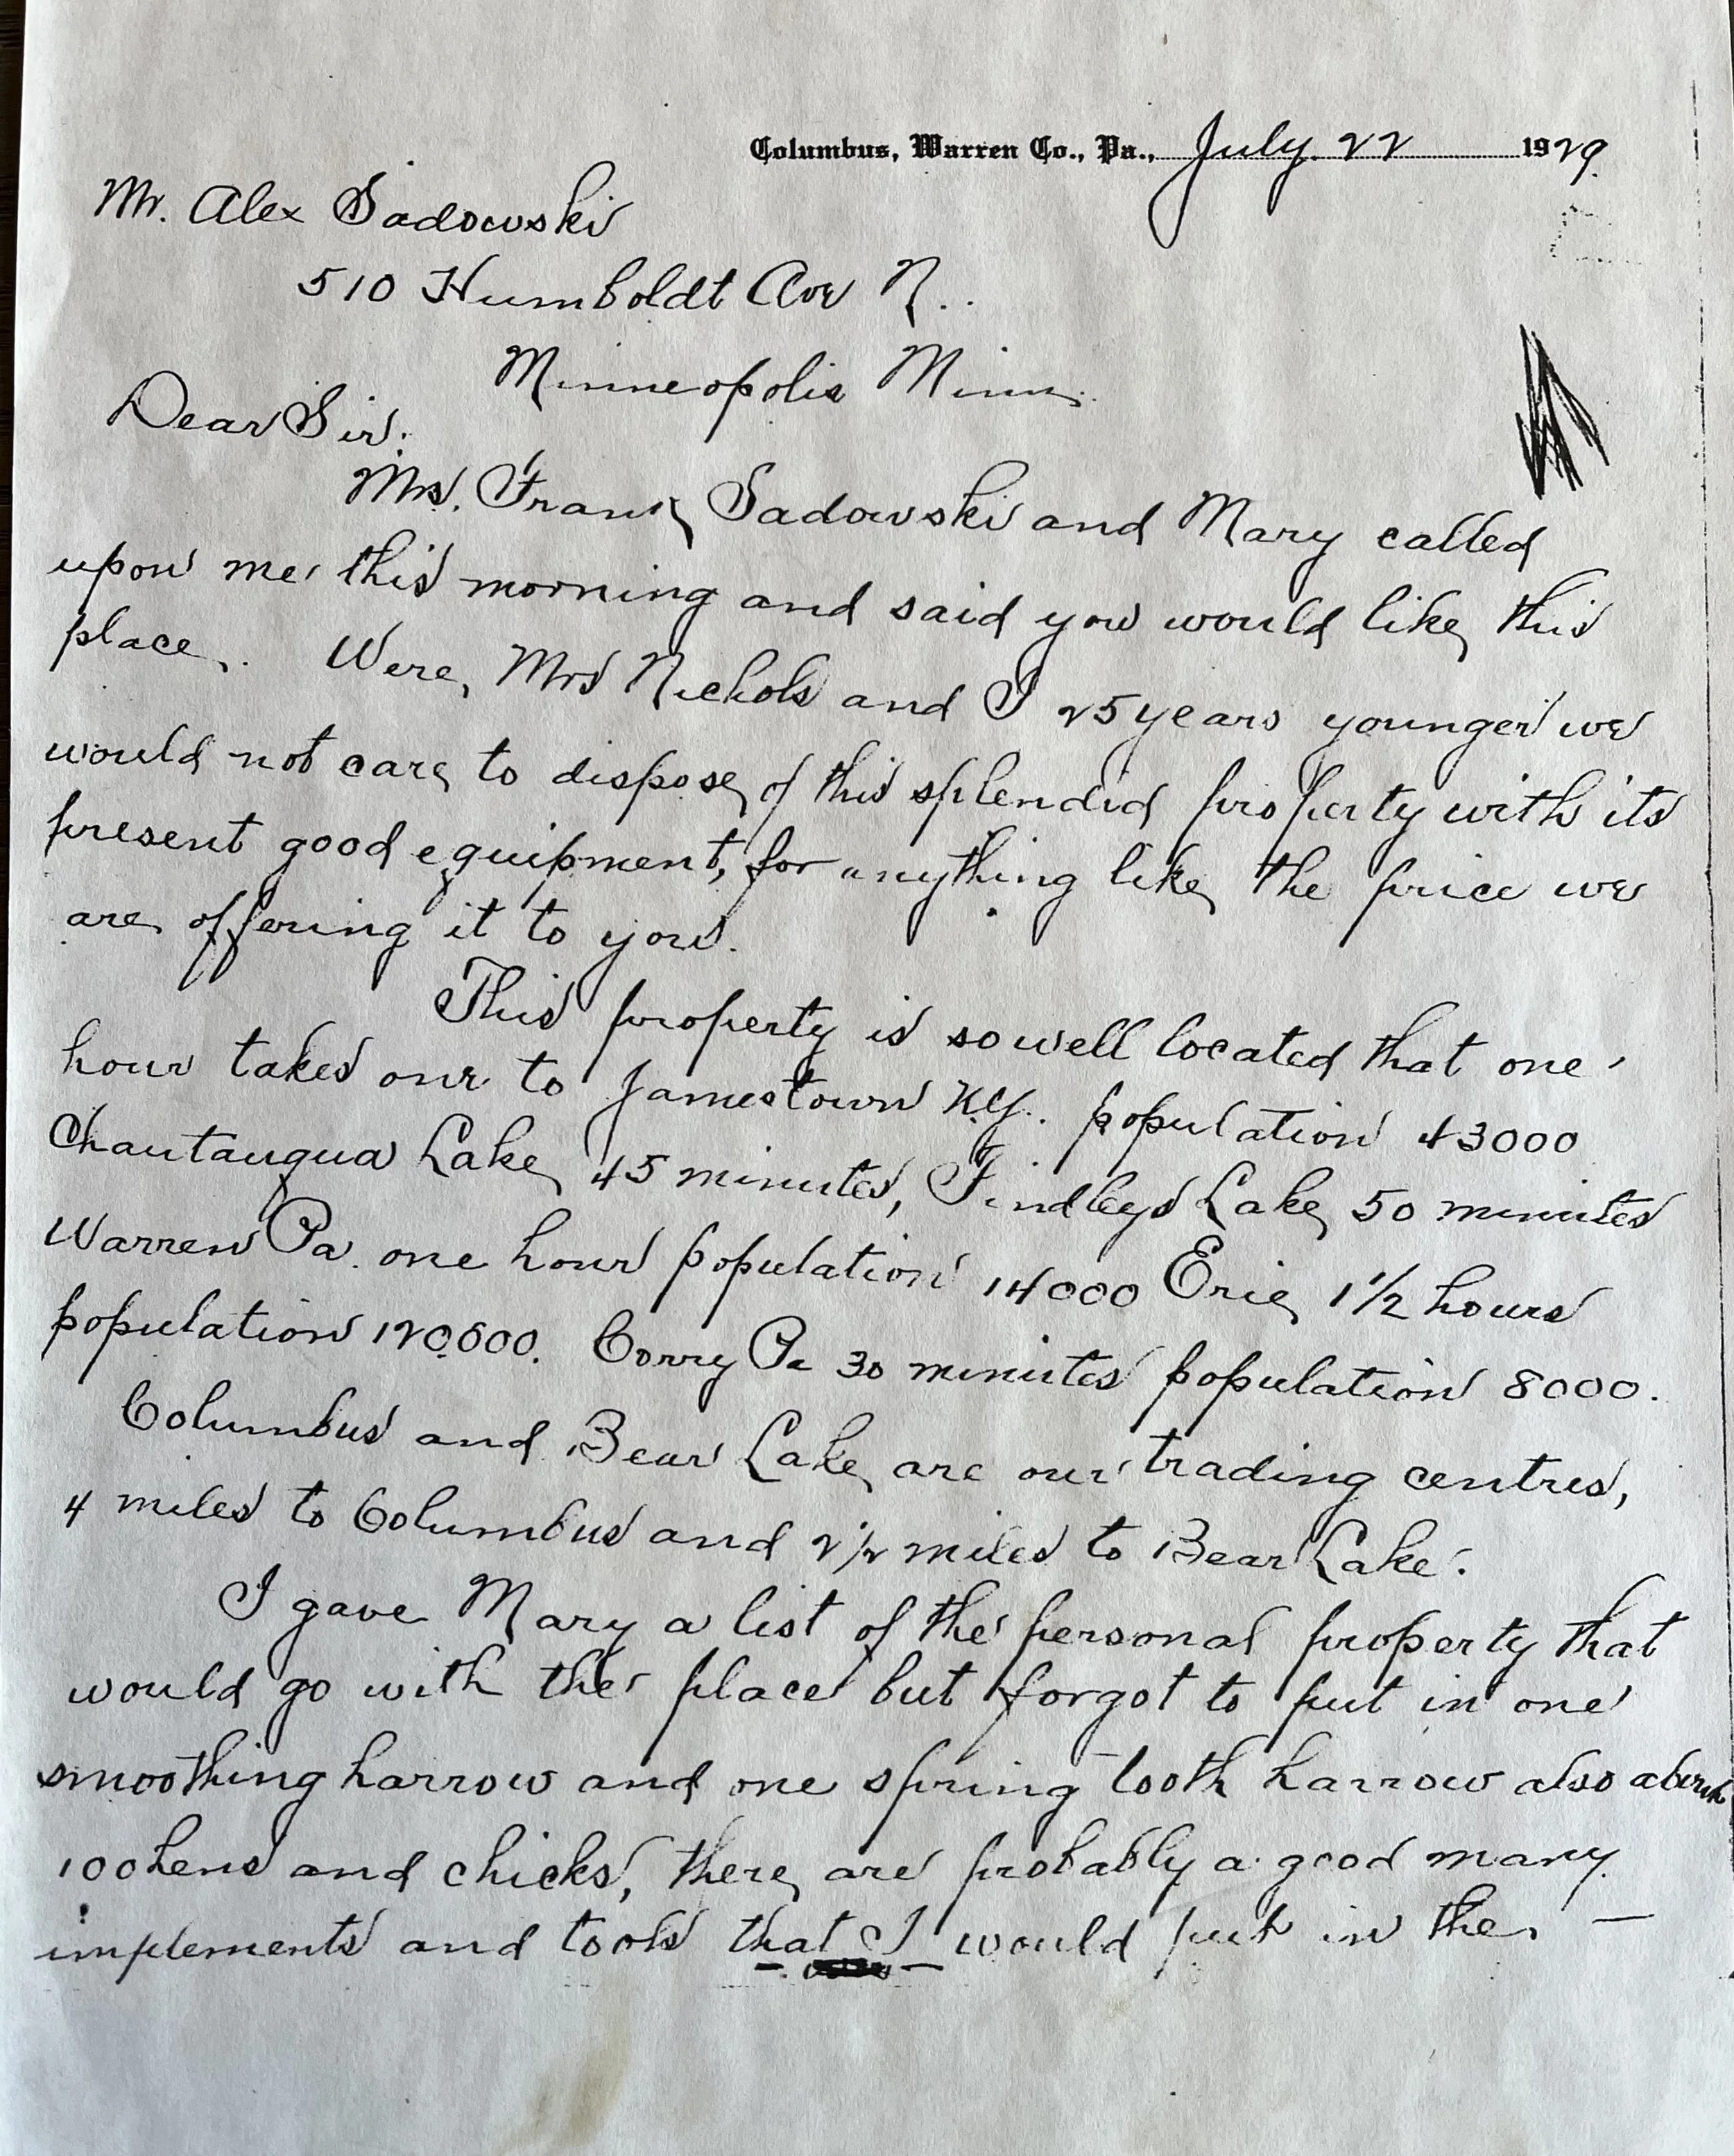 Columbus, Warren Co., Pa., July 22 1929.
Mr. Alex Sadowski
510 Humboldt Ave N..
Minneopolis Minn.
Dear Sir:
Mrs. Frank Sadowski and Mary called
upon me this morning and said you would like this
place. Were Mrs Nichols and I 25 years younger we
would not care to dispose of this splendid property with its
present good equipment, for anything like the price we
are offering it to you.
This property is so well located that one
hour takes one to Jamestown N.Y. population 43000
Chautauqua Lake 45 minutes, Findleys Lake 50 minutes
Warren Pa. one hour population 14000 Erie 1 1/2 hours
population 120.000. Corry Pa 30 minutes population 8000.
Columbus and Bear Lake are our trading centres,
4 miles to Columbus and 2 1/2 miles to Bear Lake.
I gave Mary a list of the personal property that
would go with the place but forgot to put in one
smoothing harrow and one spring tooth harrow also about
100 hens and chicks, there are probably a good many
implements and tools that I would put in the —